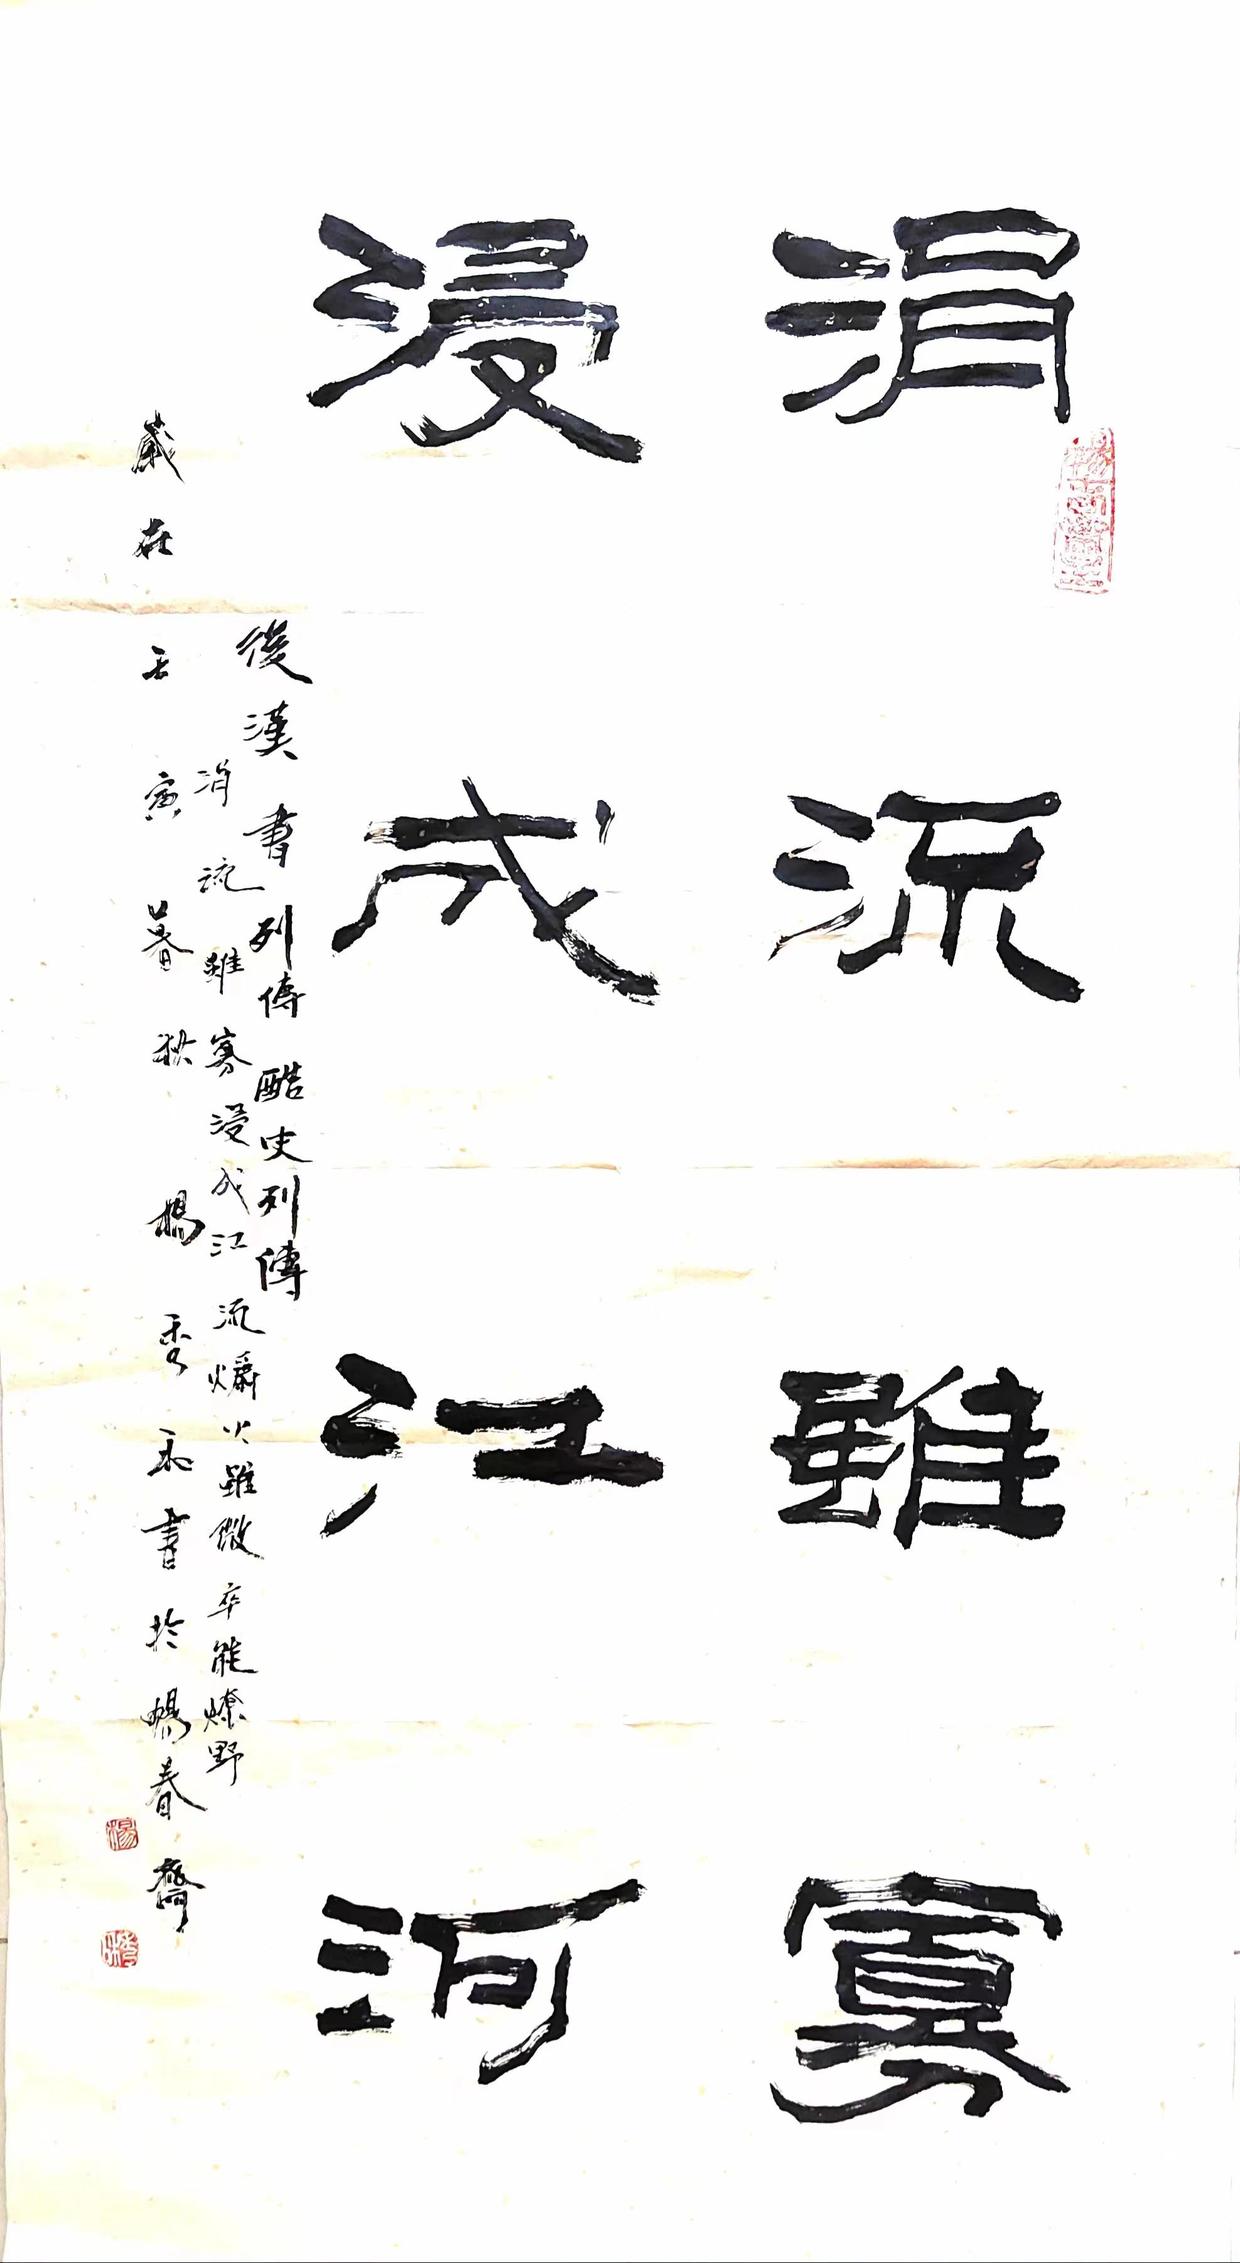 涓流雖寡
浸成江河
後漢書列傳酷吏列傳
涓流雖寡浸成江流爝火雖微卒能燎野
歲在壬寅暮秋楊秀和書於暢春齋
楊